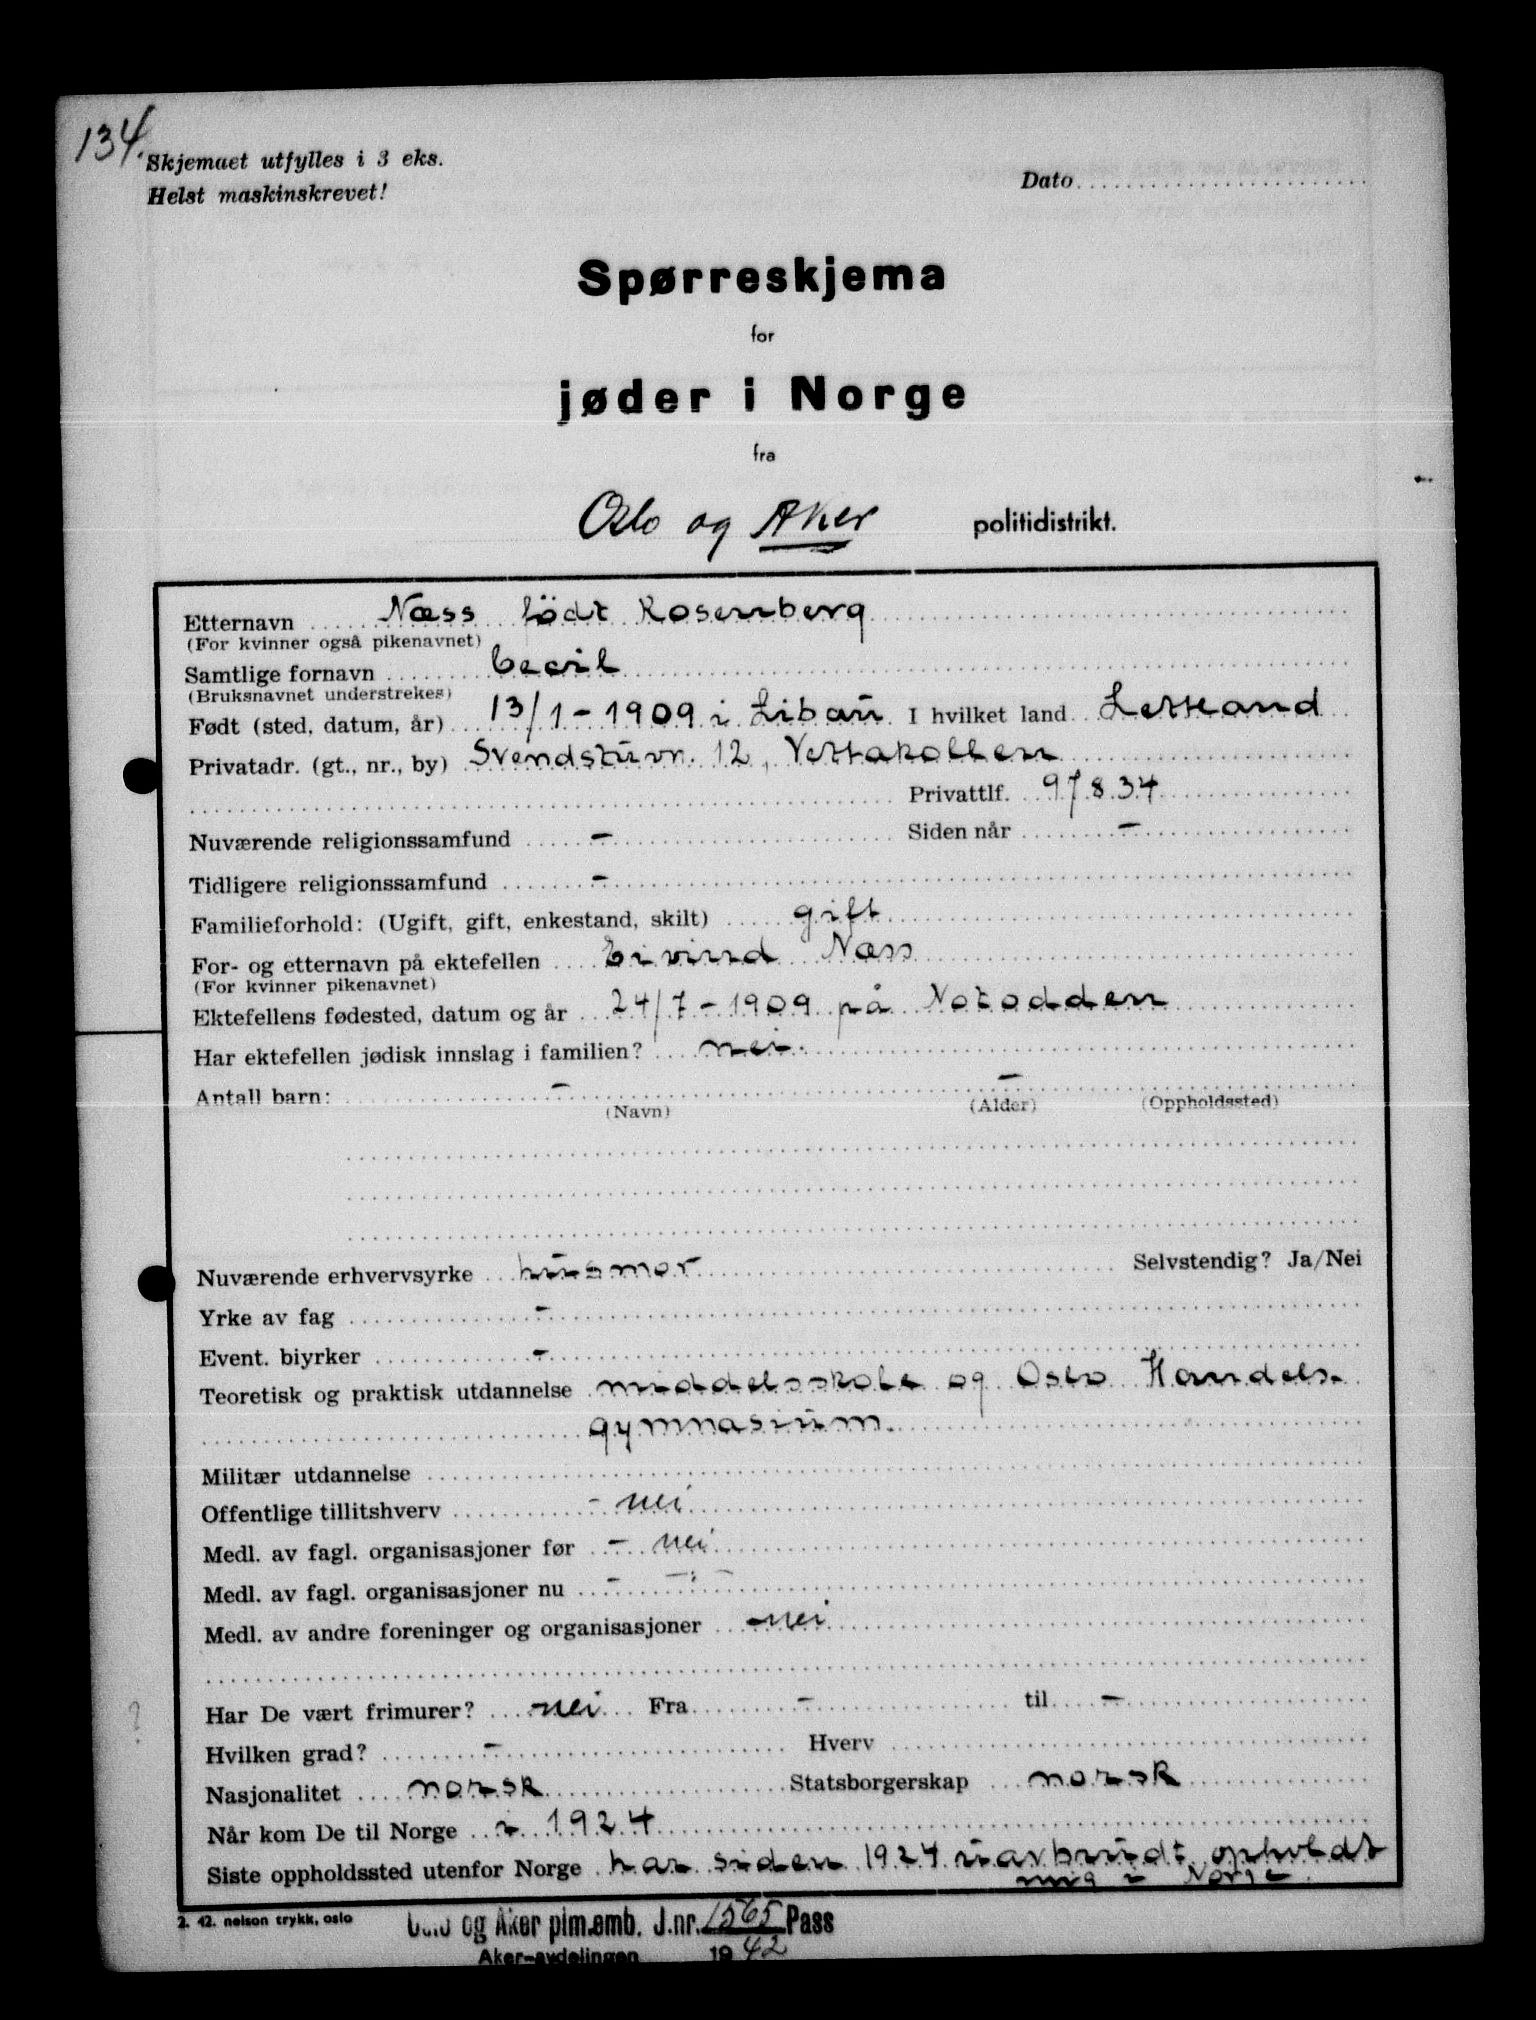 134.
Skjemaet utfylles i 3 eks.
Helst maskinskrevet!
Dato
Spørreskjema
for
jøder i Norge
fra
Oslo og Aker politidistrikt.
Etternavn Næss född Rosenberg
(For kvinner også pikenavnet)
Samtlige fornavn Cecil
(Bruksnavnet understrekes)
Født (sted, datum, år) 13/1-1909 i Libau I hvilket land Lettland
Privatadr. (gt., nr., by) Svendstuvn. 12, Vettakollen
Privattlf. 97834
Nuværende religionssamfund - Siden når -
Tidligere religionssamfund -
Familieforhold: (Ugift, gift, enkestand, skilt) gift
For- og etternavn på ektefellen Eivind Næss
(For kvinner pikenavnet)
Ektefellens fødested, datum og år 24/7-1909 på Notodden
Har ektefellen jødisk innslag i familien? nei.
Antall barn: - -
(Navn) (Alder) (Oppholdssted)
Nuværende erhvervsyrke husmor Selvstendig? Ja/Nei
Yrke av fag -
Event. biyrker -
Teoretisk og praktisk utdannelse middelsskole og Oslo Handels-
gymnasium.
Militær utdannelse
Offentlige tillitshverv - nei
Medl. av fagl. organisasjoner før - nei
Medl. av fagl. organisasjoner nu - -"-
Medl. av andre foreninger og organisasjoner -nei
Har De vært frimurer? nei Fra - til -
Hvilken grad? - Hverv
Nasjonalitet norsk Statsborgerskap norsk
Når kom De til Norge i 1924
Siste oppholdssted utenfor Norge har siden 1924 uavbrudt opholdt
mig i Norge.
2. 42. nelson trykk, oslo
Oslo og Aker plm.emb. J.nr. 1565 Pass
Aker-avdelingen 1942